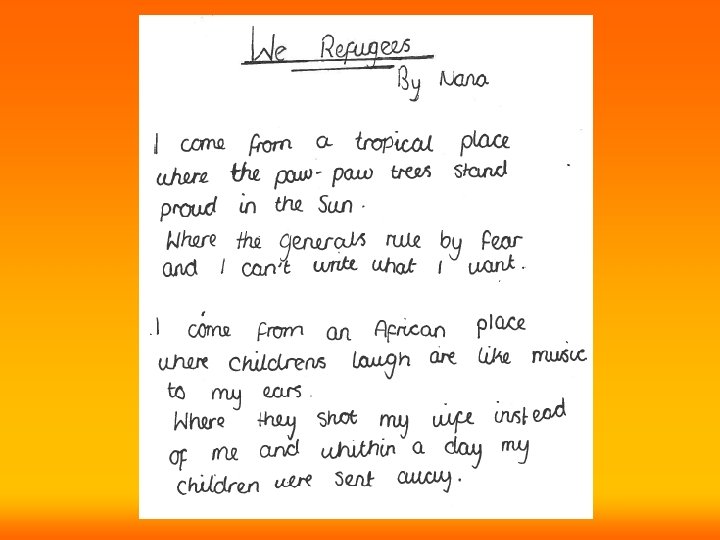 We Refugees
By Nana
I come from a tropical place
where the paw-paw trees stand
proud in the Sun.
Where the generals rule by fear
and I can't write what I want.
I come from an African place
where childrens laugh are like music
to my ears.
Where they shot my wife instead
of me and whithin a day my
children were sent away.